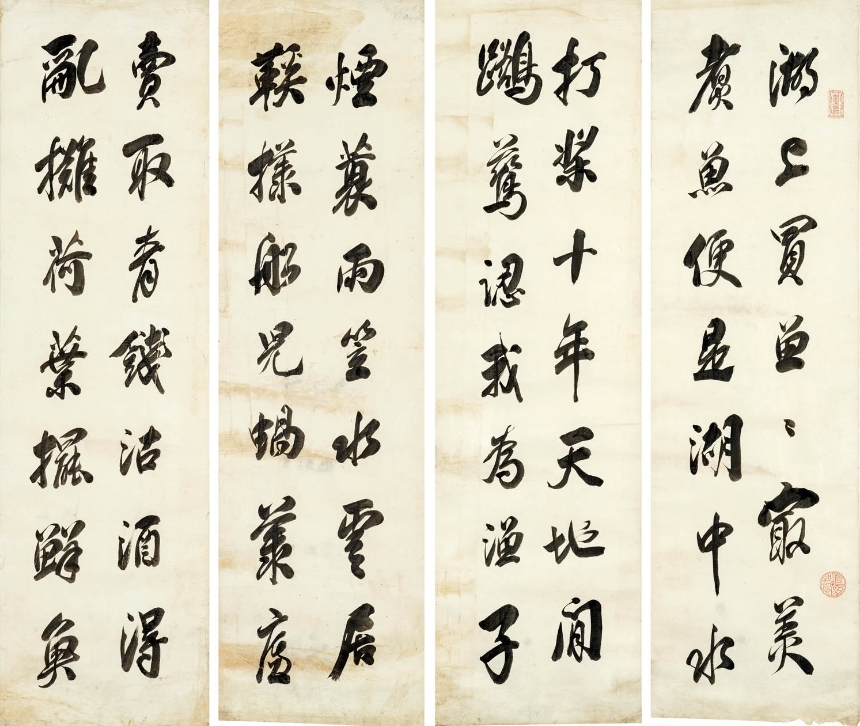 湖上買魚〻最美
煮魚便是湖中水
打槳十年天地間
鷗鷺認我為漁子
煙蓑雨笠水雲居
鞋樣船兒蝸廬
賣取青錢沽酒得
亂攤荷葉擺鮮魚